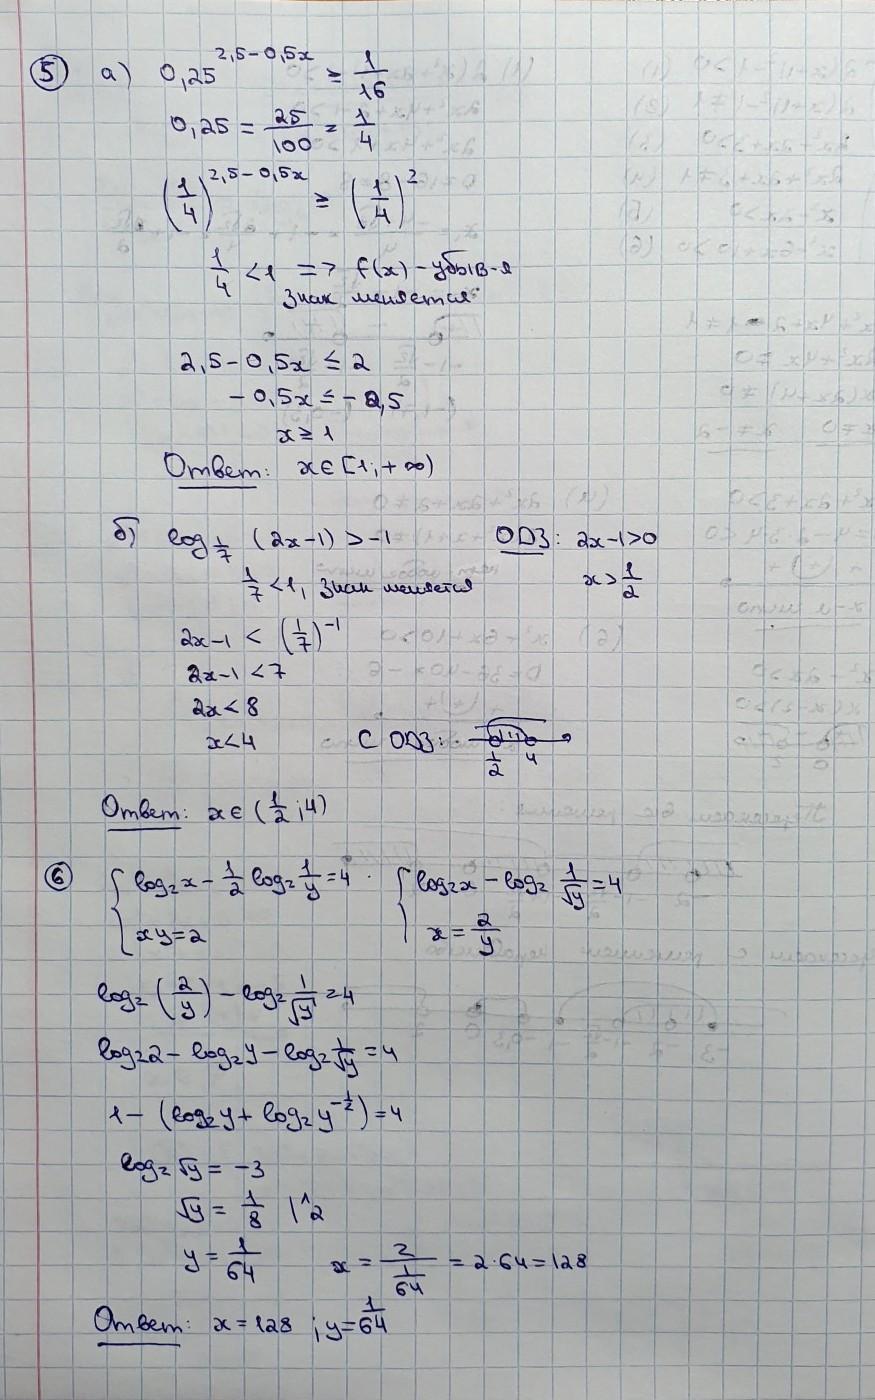 5 а) 0,25^(2,5-0,5x) ≥ 1/16
0,25 = 25/100 = 1/4
(1/4)^(2,5-0,5x) ≥ (1/4)^2
1/4 < 1 => f(x) - убыв-я
знак меняется
2,5-0,5x ≤ 2
-0,5x ≤ -0,5
x ≥ 1
Ответ: x∈[1;+∞)
б) log_(1/7) (2x-1) > -1 ОДЗ: 2x-1>0
1/7 < 1, знак меняется x > 1/2
2x-1 < (1/7)^(-1)
2x-1 < 7
2x < 8
x < 4 С ОДЗ:
1/2 4
Ответ: x∈(1/2;4)
6 { log₂x - 1/2 log₂ 1/y = 4 { log₂x - log₂ 1/√y = 4
xy = 2 x = 2/y
log₂ (2/y) - log₂ 1/√y = 4
log₂2 - log₂y - log₂ 1/√y = 4
1 - (log₂y + log₂y^(-1/2)) = 4
log₂ √y = -3
√y = 1/8 |^2
y = 1/64 x = 2/(1/64) = 2·64 = 128
Ответ: x = 128 ; y = 1/64